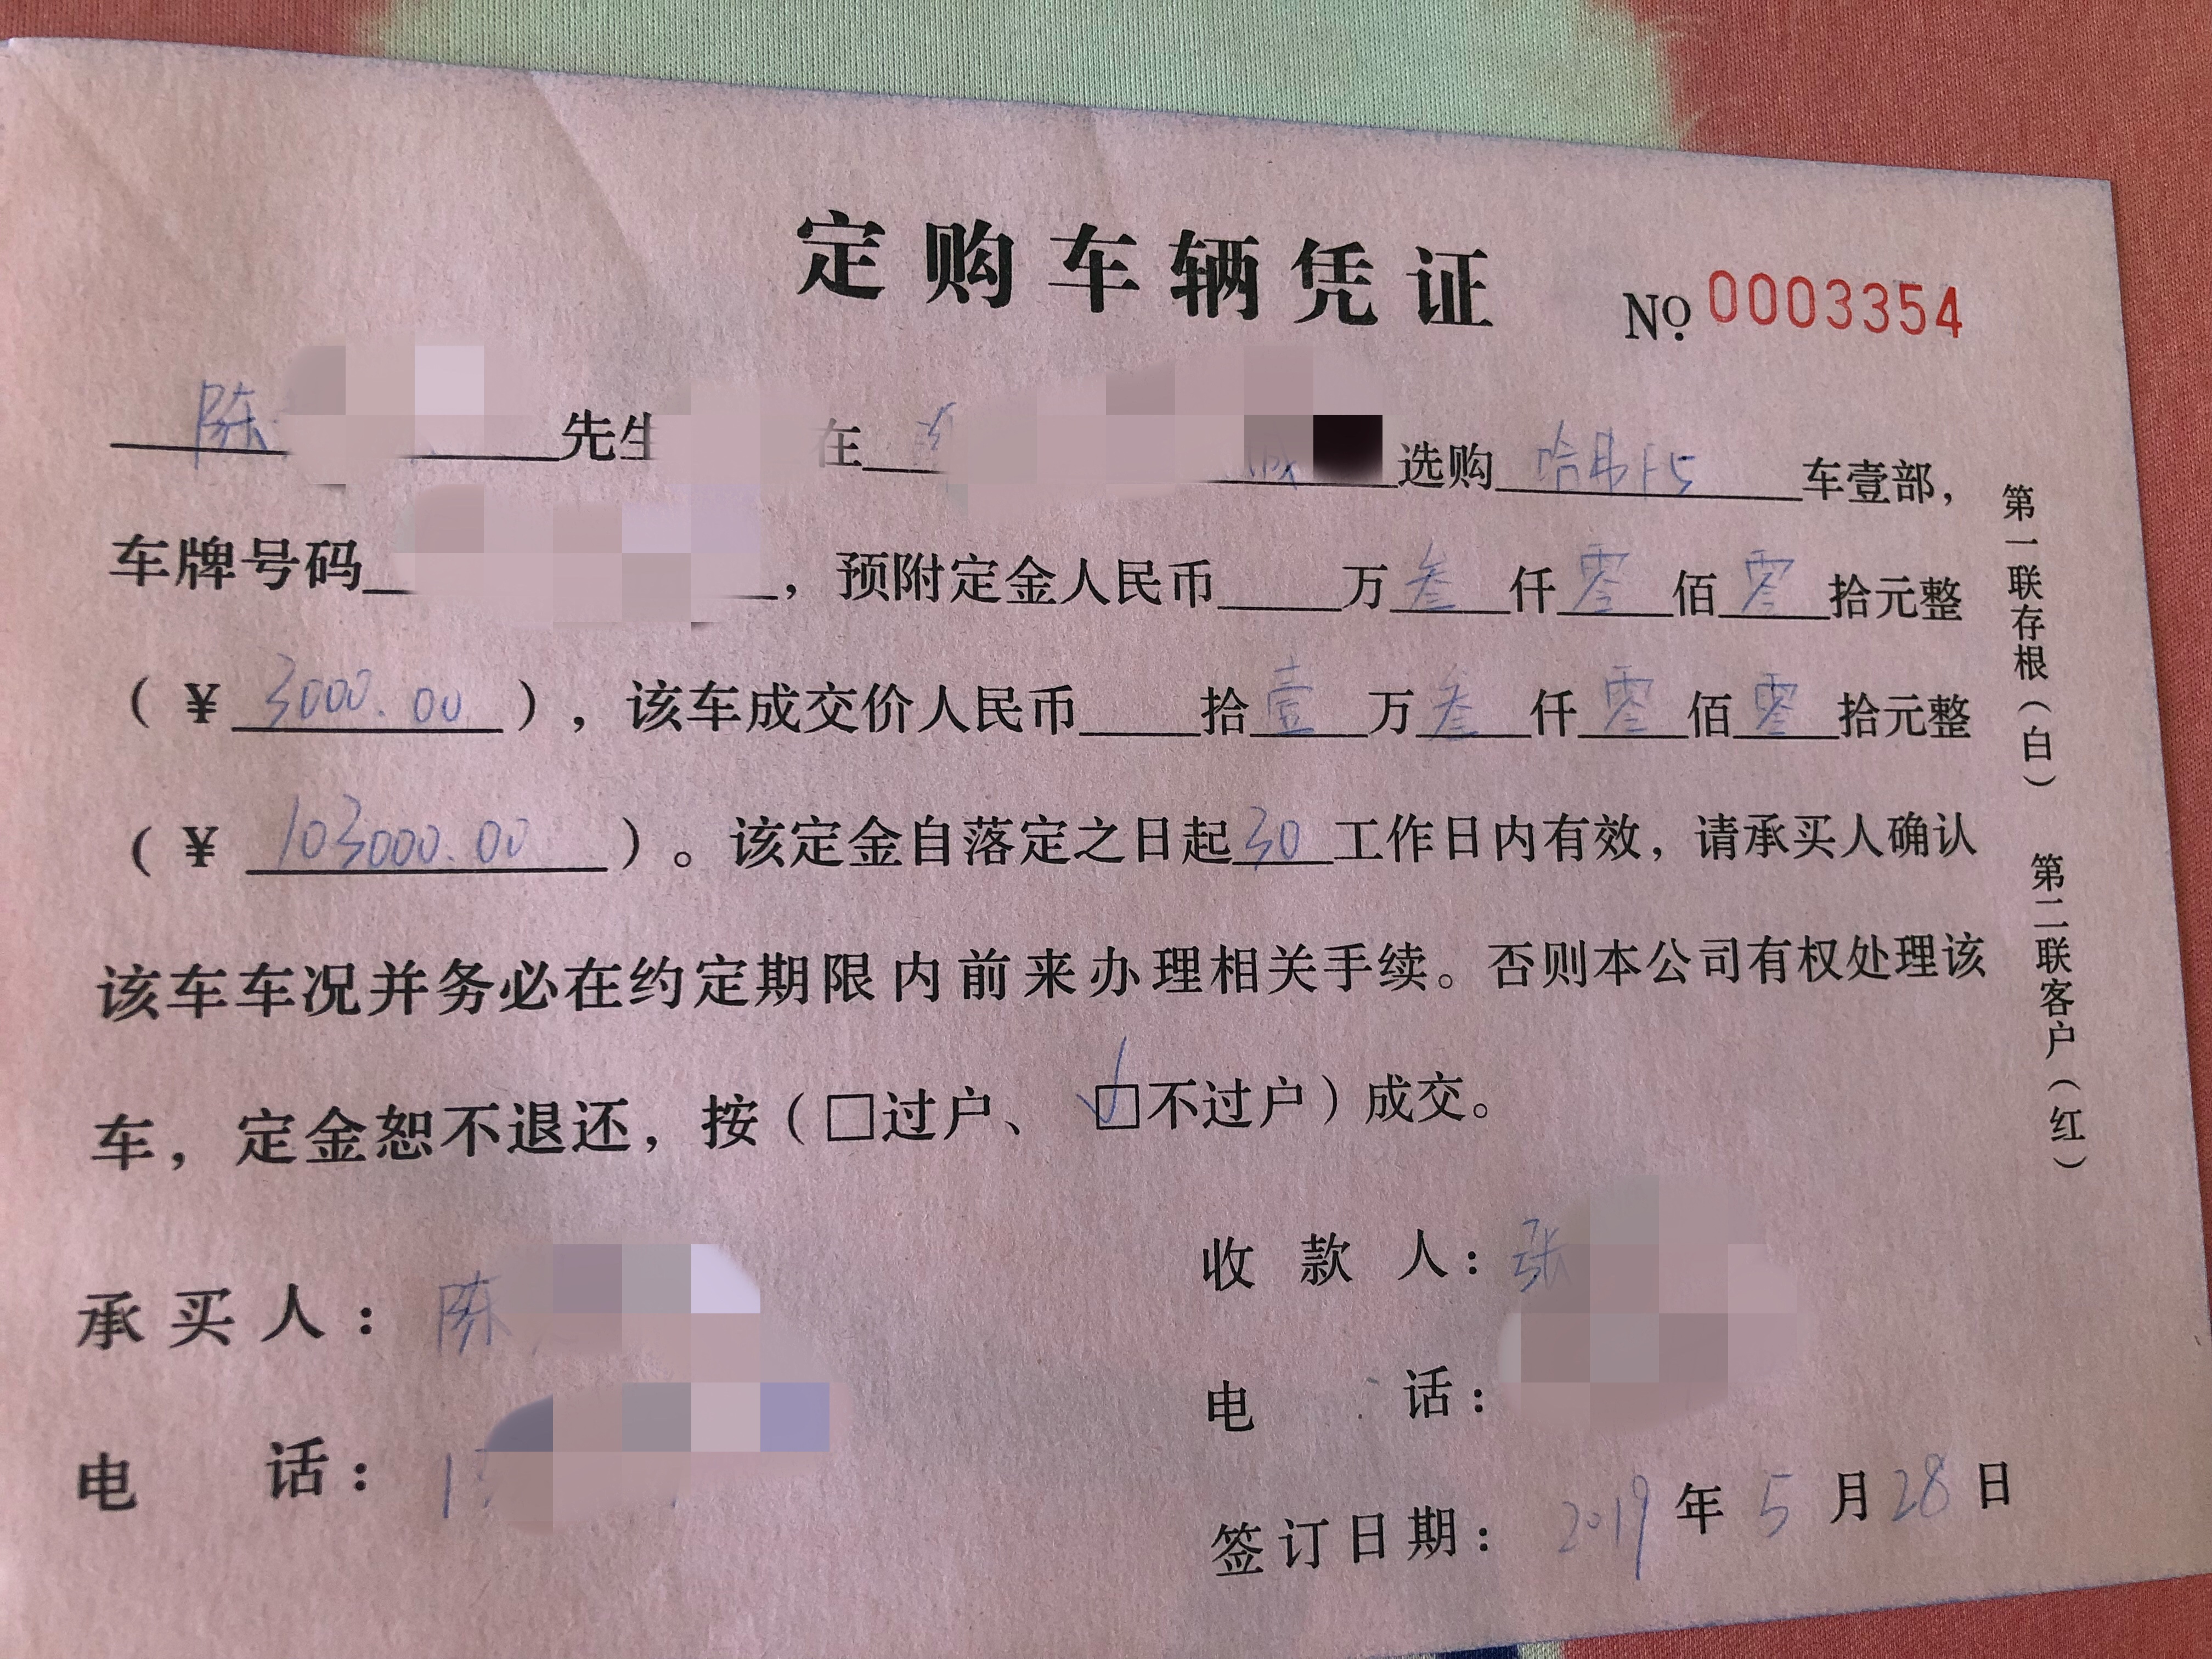 定购车辆凭证 No 0003354
陈 先生 在 选购 哈弗F5 车壹部,
车牌号码 ,预附定金人民币 万叁仟零佰零拾元整
(¥ 3000.00 ),该车成交价人民币 拾壹万叁仟零佰零拾元整
(¥ 103000.00 )。该定金自落定之日起30工作日内有效,请承买人确认
该车车况并务必在约定期限内前来办理相关手续。否则本公司有权处理该
车,定金恕不退还,按(□过户、☑不过户)成交。
收款人:张
承买人:陈
电话:
电话:1
签订日期:2019年5月28日
第一联存根(白) 第二联客户(红)